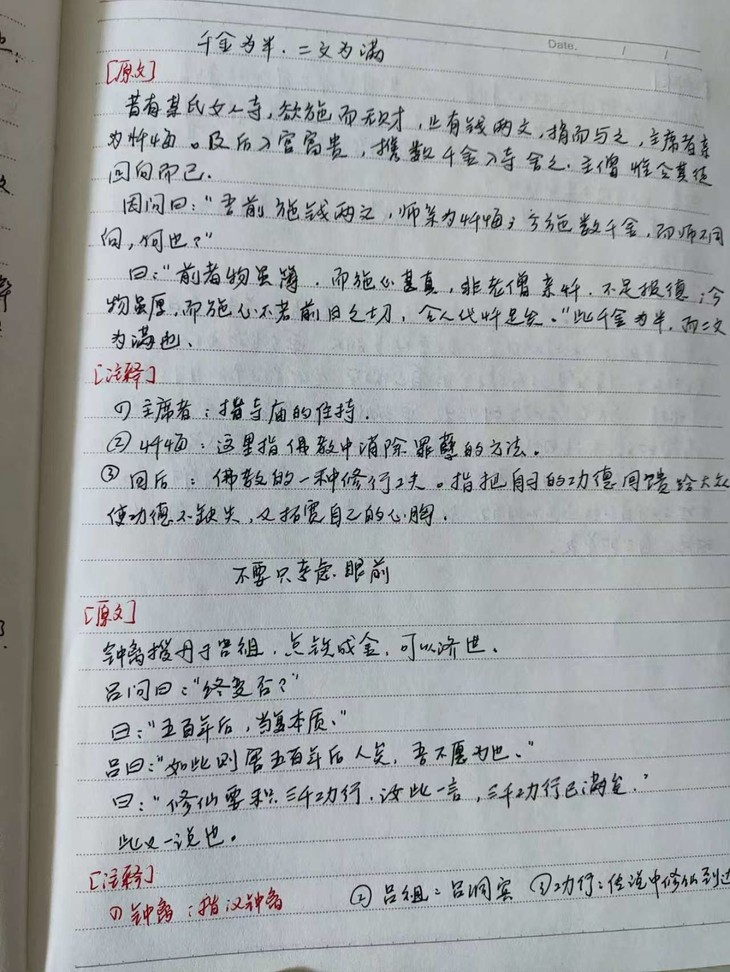 千金为半.二文为满
Date.
[原文]
昔有某氏女入寺,欲施而无财,止有钱两文,捐而与之,主席者亲
为忏悔。及后入宫富贵,携数千金入寺舍之.主僧惟令其徒
回向而已.
因问曰:"吾前施钱两文,师亲为忏悔;今施数千金,而师不回
向,何也?"
曰:"前者物虽薄.而施心甚真,非老僧亲忏.不足报德;今
物虽厚,而施心不若前日之切,令人代忏足矣。"此千金为半.而二文
为满也.
[注释]
① 主席者:指寺庙的住持.
② 忏悔:这里指佛教中消除罪孽的方法。
③ 回后:佛教的一种修行工夫。指把自己的功德回馈给大众
使功德不缺失,又拓宽自己的心胸.
不要只考虑眼前
[原文]
钟离授丹于吕祖.点铁成金,可以济世.
吕问曰:"终变否?"
曰:"五百年后,当复本质."
吕曰:"如此则害五百年后人矣,吾不愿为也."
曰:"修仙要积三千功行.汝此一言,三千功行已满矣."
此又一说也。
[注释]
① 钟离:指汉钟离 ② 吕祖:吕洞宾 ③ 功行:传说中修仙到达